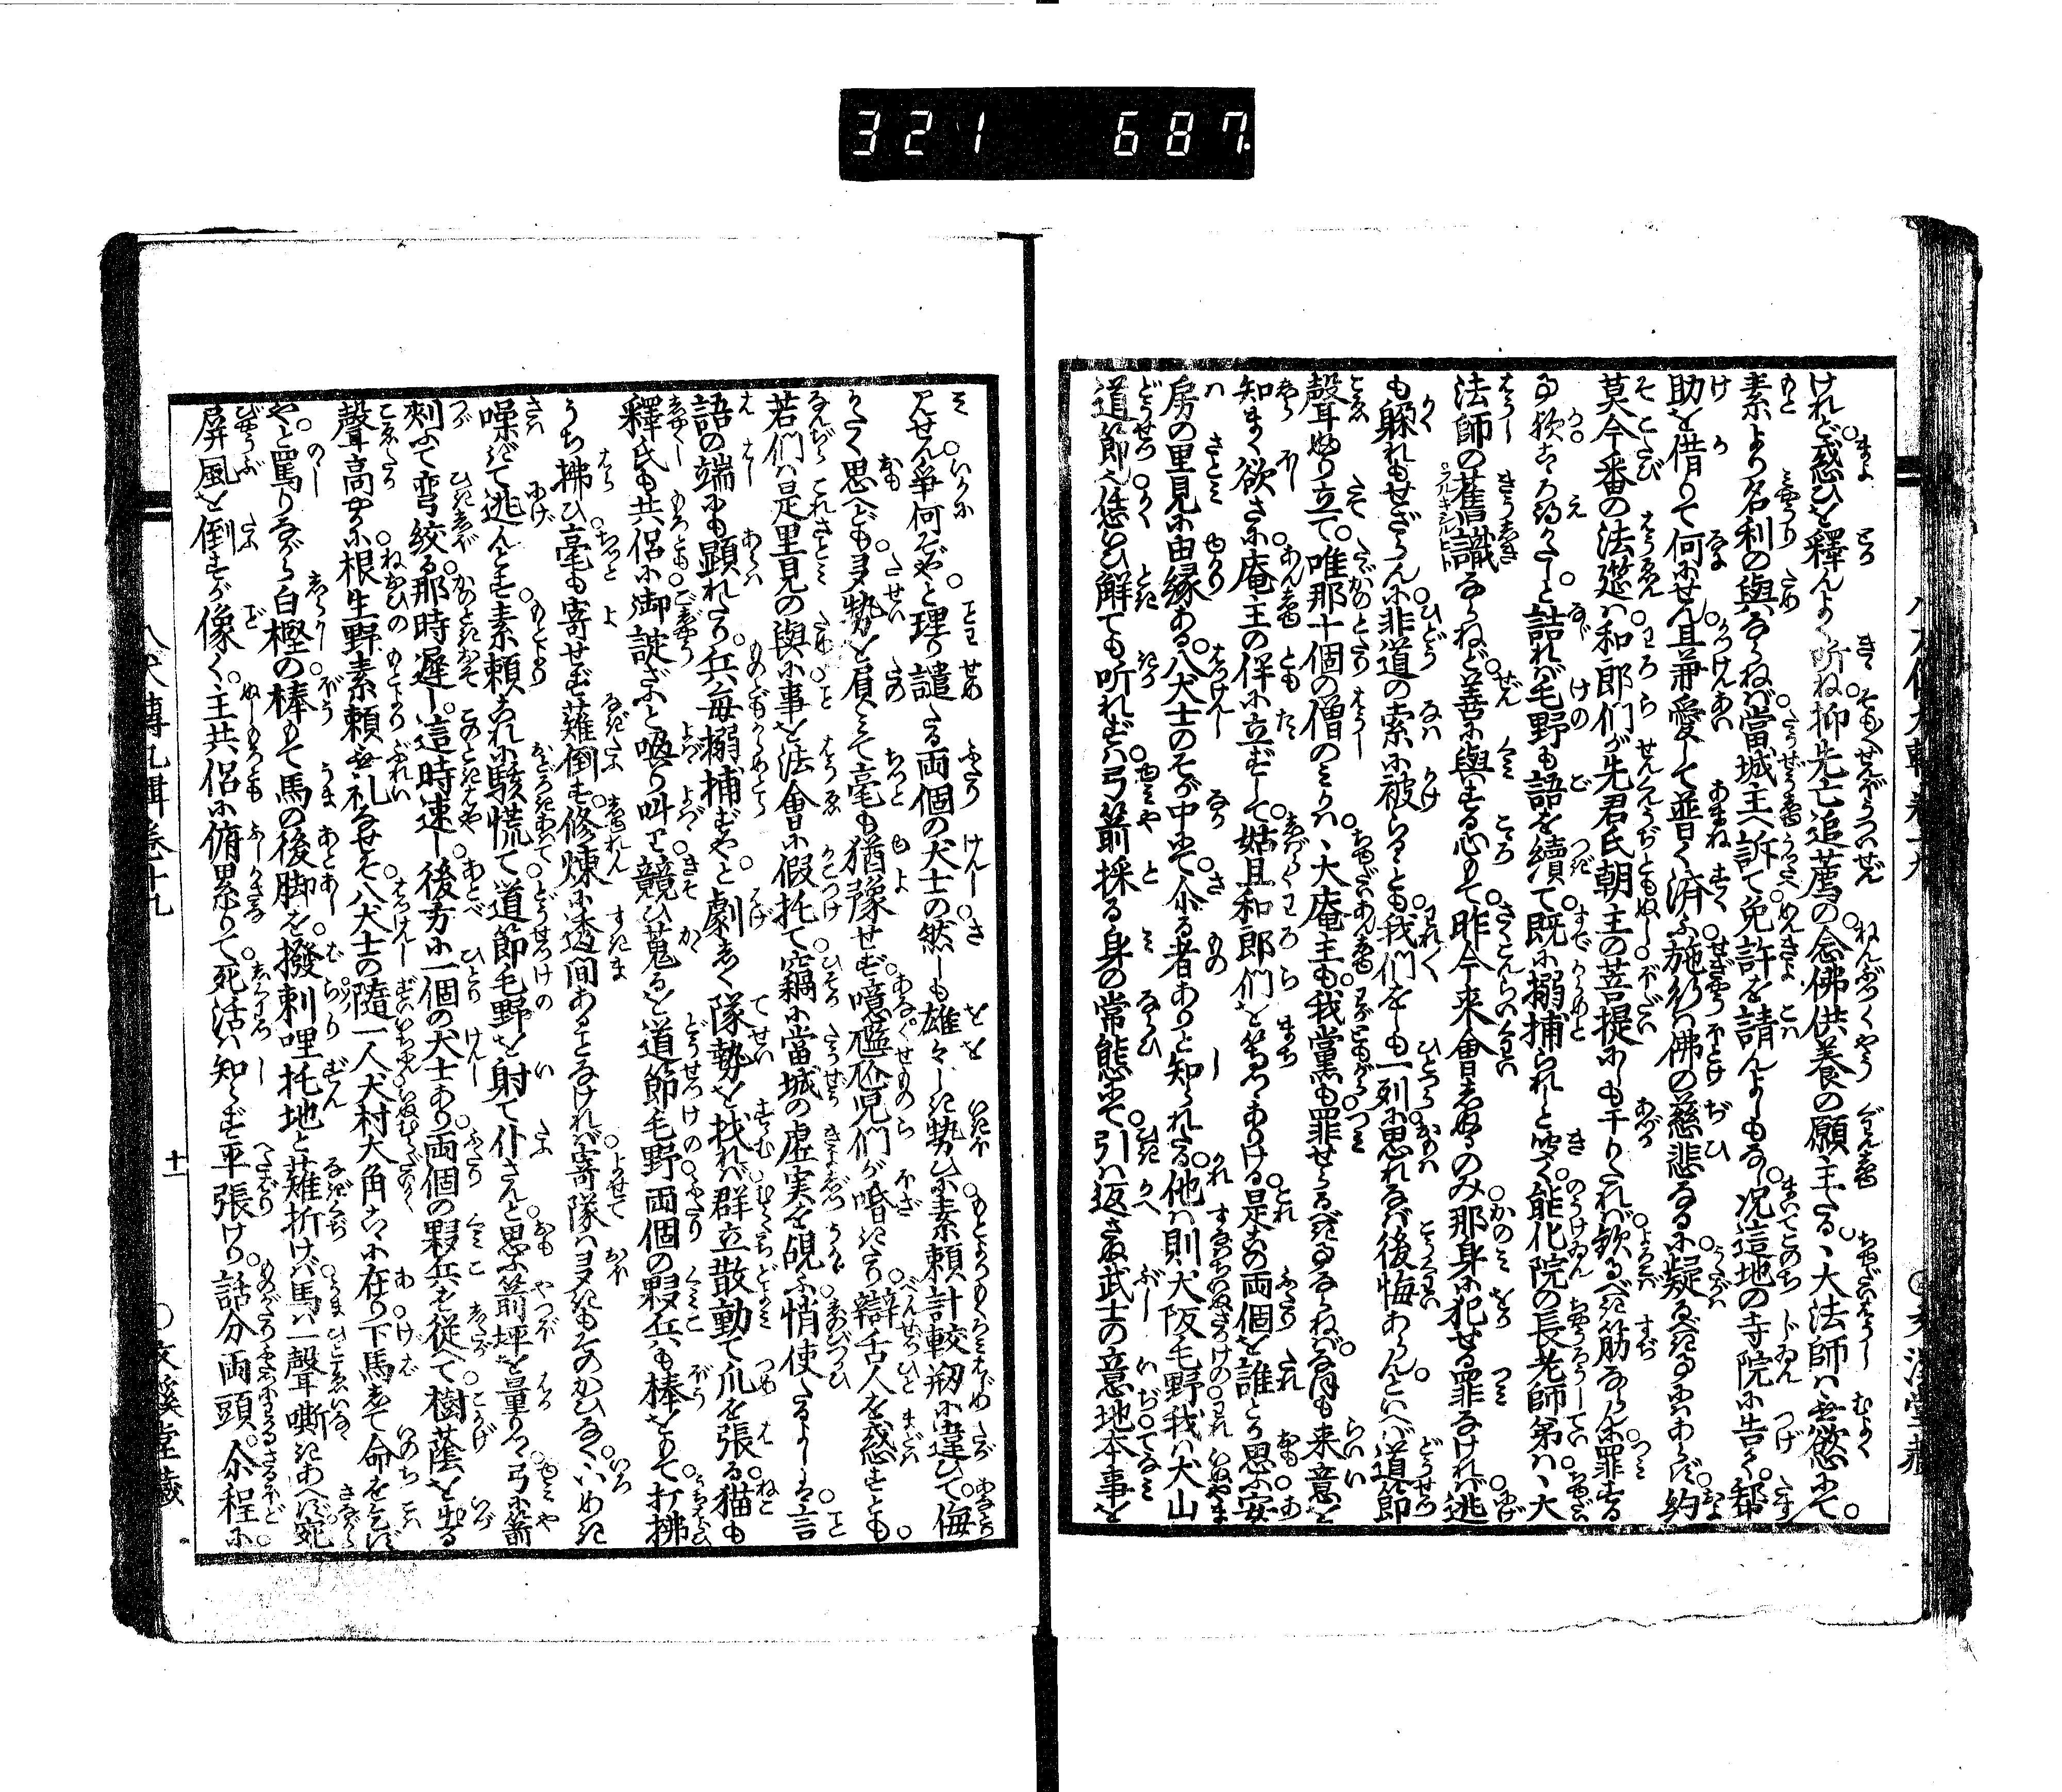 321 687
けれど。惑ひを釋んよく听ね。抑先亡追薦の。念佛供養の願主たる。、大法師は無欲にて。
素より名利の與ならねば。當城主へ訴て。免許を請んよしもなし。况這地の寺院に告て。帮
助を借りて何にせん。且兼愛して普く済ふ。施行は佛の慈悲なるに。疑るべき事にはあらず。約
莫今番の法筵は。和郎們が先君氏朝主の。菩提にも干りたれば。歓るべき筋ならんに。罪する
事歟こゝろ得がたし。と詰れば毛野も語を續て。既に搦捕られしと歟聞く。能化院の長老師弟は。、大
法師の舊識ならねど。善に與する心もて。昨今来會しぬるのみ。那身に犯せる罪なければ。逃
も躱れもせざらんに。非道の索に被らるゝとも。我們をも一列に。思れなば後悔あらん。といへば道節
聲ふり立て。唯那十個の僧のみかは。、大庵主も。我黨も。罪せらるべき事ならねば。肯も来意を
知まく欲さに。庵主の伴に立ずして。姑且和郎們を等てありける。是この両個を誰とか思ふ。安
房の里見に由縁ある。八犬士のそが中にて。介る者ありと知られたる。他は則犬阪毛野。我は犬山
道節也。恁いひ觧ても听れずは。弓箭採る身の常態にて。引は返さぬ武士の。意地本事を
見せん。争何ぞや。と理り譴たる両個の犬士の。然しも雄々しき勢ひに。素頼計較初に違ひて。侮
かたく思へども。多勢を負みて毫も猶豫せず。噫尷尬児們が喈きたり。辯舌人を惑すとも。
若們は是里見の與に。事を法會に假托て。竊に當城の虚実を覘ふ。悄使たるよしは。言
語の端にも顕れたり。兵毎搦捕ずや。と劇しく隊勢を找れば。群立散動て爪を張る。猫も
釋氏も共侶に。御諚ざふと喚り叫て。競ひ蒐るを道節毛野。両個の夥兵も棒をもて。打拂
うち拂ひ。毫も寄せず薙倒す。修煉に透間あることなければ。寄隊は多きもそのかひなく。いろめき
噪ぎて逃んとす。素頼これに駭慌て。道節毛野を射て仆さんと。思ふ箭坪を量りつゝ。弓に箭
刺て弯絞る。那時遅し。這時速し。後方に一個の犬士あり。両個の夥兵を従へて。樹蔭を出る
聲高やかに。根生野素頼無礼なせそ。八犬士の隨一人。犬村大角こゝに在り。下馬して命を乞ずや。
や。と罵りながら白樫の。棒もて馬の後脚を。撥剌哩托地と薙折けば。馬は一聲嘶きあへず。宛
屏風を倒すが像く。主共侶に俯累りて。死活は知らず平張けり。話分両頭。介程に。
八犬傳九輯卷十九
十一
文溪堂藏